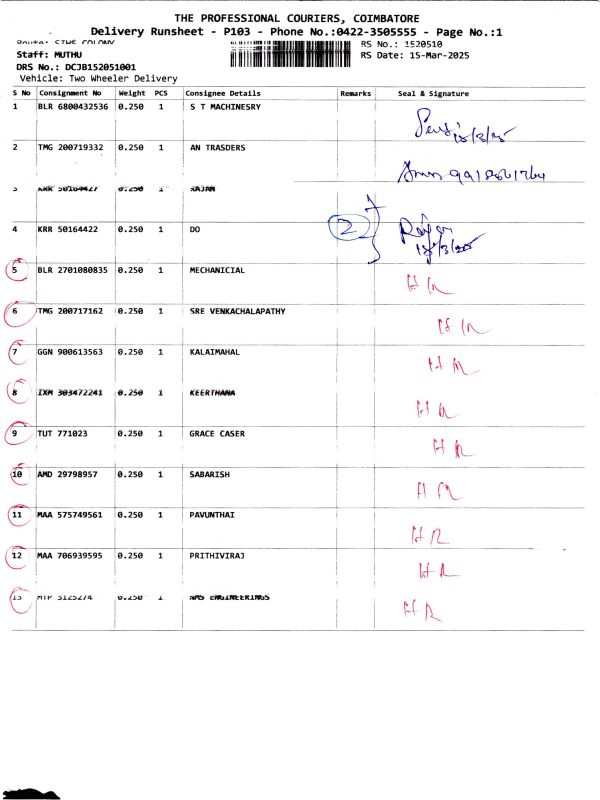 THE PROFESSIONAL COURIERS, COIMBATORE
Delivery Runsheet - P103 - Phone No.:0422-3505555 - Page No.:1
RS No.: 1520510
Staff: MUTHU
RS Date: 15-Mar-2025
DRS No.: DCJB152051001
Vehicle: Two Wheeler Delivery
S No Consignment No Weight PCS Consignee Details Remarks Seal & Signature
1 BLR 6800432536 0.250 1 S T MACHINESRY
2 TMG 200719332 0.250 1 AN TRASDERS
3 KRR 50164427 0.250 1 RAJAN
4 KRR 50164422 0.250 1 DO 2
5 BLR 2701080835 0.250 1 MECHANICIAL
6 TMG 200717162 0.250 1 SRE VENKACHALAPATHY
7 GGN 900613563 0.250 1 KALAIMAHAL
8 IXM 303472241 0.250 1 KEERTHANA
9 TUT 771023 0.250 1 GRACE CASER
10 AMD 29798957 0.250 1 SABARISH
11 MAA 575749561 0.250 1 PAVUNTHAI
12 MAA 706939595 0.250 1 PRITHIVIRAJ
13 0.250 1 AMS ENGINEERINGS